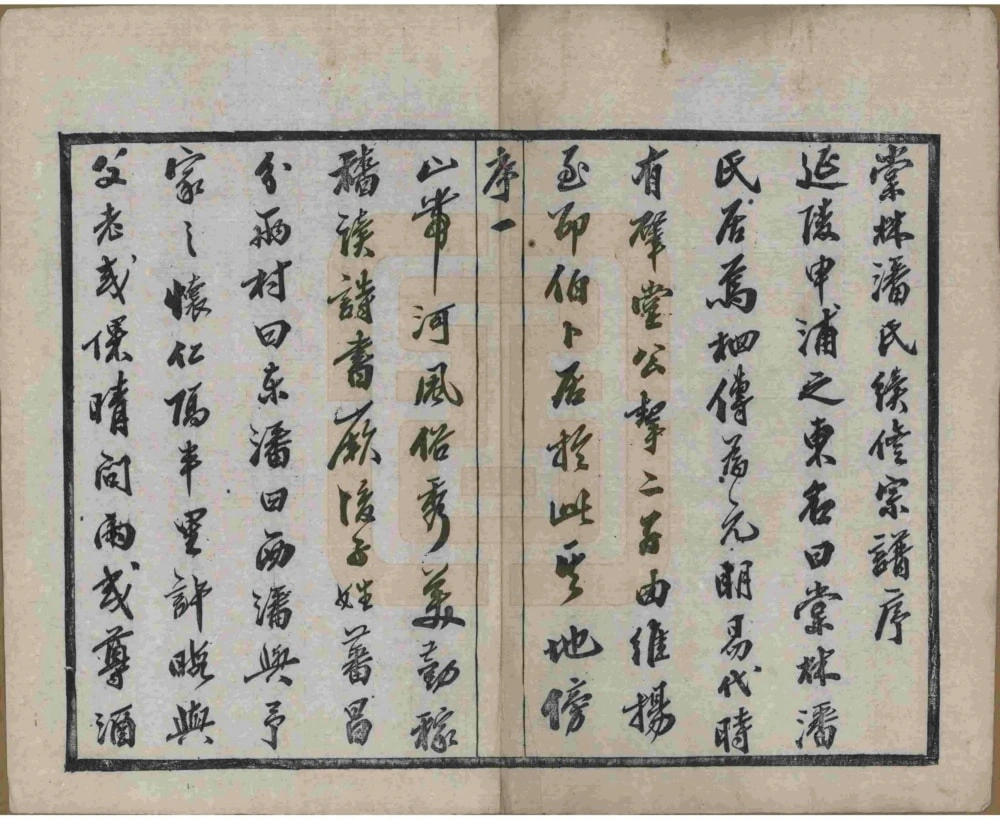 棠林潘氏續修宗譜序
延陵申浦之東名曰棠林潘
氏居焉相傳為元明易代時
有肇堂公挈二子由維揚
至卲伯卜居於此其地傍
序一
山帶河風俗秀美勤稼
穡讀詩書厥後子姓蕃昌
分兩村曰東潘曰西潘與予
家之懷仁隔半里許暇與
父老或保晴問雨或尊酒